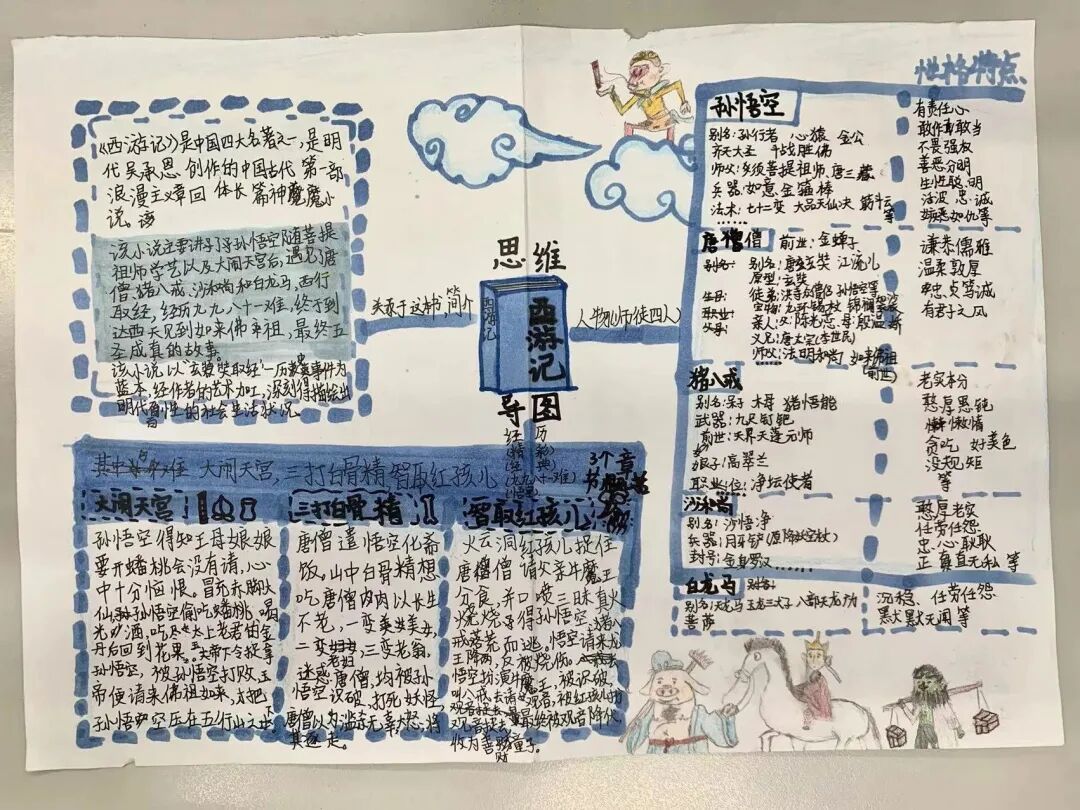 《西游记》是中国四大名著之一,是明
代吴承恩创作的中国古代第一部
浪漫主章回体长篇神魔小
说。该
该小说主要讲了孙悟空随菩提
祖师学艺以及大闹天宫后,遇见唐
僧、猪八戒、沙和尚和白龙马,西行
取经,经历九九八十一难,终于到
达西天见到如来佛祖,最终五
圣成真的故事。
该小说以“玄奘取经”一历史事件为
蓝本,经作者的艺术加工,深刻得描绘出
明代百姓的社会生活状况。
关于这本书,简介
思维
西游记
西游记
导图
人物(师徒四人)
性格特点
孙悟空
别名:孙行者 心猿 金公
齐天大圣 斗战胜佛
师父:须菩提祖师、唐三藏
兵器:如意金箍棒
法术:七十二变 大品天仙决 筋斗云
等
有责任心
敢作敢当
不畏强权
善恶分明
生性聪明
活波 忠诚
嫉恶如仇等
唐僧 前世:金蝉子
别名:唐玄奘 江流儿
原型:玄奘
徒弟:孙悟空等
宝物:九环锡杖 锦襕袈裟
亲人:父:陈光蕊 母:殷温娇
义兄:唐太宗(李世民)
师父:法明和尚 如来佛祖
(前世)
谦恭儒雅
温柔敦厚
忠贞笃诚
有君子之风
猪八戒
别名:呆子 木母 猪悟能
武器:九尺钉钯
前世:天界天蓬元帅
娘子:高翠兰
职业位:净坛使者
老实本分
憨厚愚钝
懒惰
贪吃 好美色
没规矩
等
沙和尚
别名:沙悟净
兵器:月牙铲(原降妖宝杖)
封号:金身罗汉
憨厚老实
任劳任怨
忠心耿耿
正直无私 等
白龙马
别名:天龙马 玉龙三太子 八部天龙广力
菩萨
沉稳、任劳任怨
默默无闻等
其中 大闹天宫,三打白骨精 智取红孩儿
3个章
大闹天宫
孙悟空得知王母娘娘
要开蟠桃会没有请,心
中十分恼恨。冒充赤脚大
仙孙悟空偷吃蟠桃、喝
光酒,吃尽太上老君的金
丹后回到花果。玉帝下令捉拿
孙悟空,被孙悟空打败,玉
帝便请来佛祖如来,才把
孙悟空压在五行山之下。
三打白骨精
唐僧遣悟空化斋
饭,山中白骨精想
吃唐僧肉以长生
不老,一变美女,
二变老妇,三变老翁,
迷惑唐僧,均被孙
悟空识破,打死妖怪,
唐僧以为滥杀无辜大怒,将
其逐走。
智取红孩儿
火云洞红孩儿捉住
唐僧 请父亲牛魔王
分食,并口喷三昧真火
烧得孙悟空、猪八
戒落荒而逃。悟空请来龙
王降雨,反被烧伤。
悟空扮演牛魔王,被识破,
最终被观音降伏,
收为善财童子。